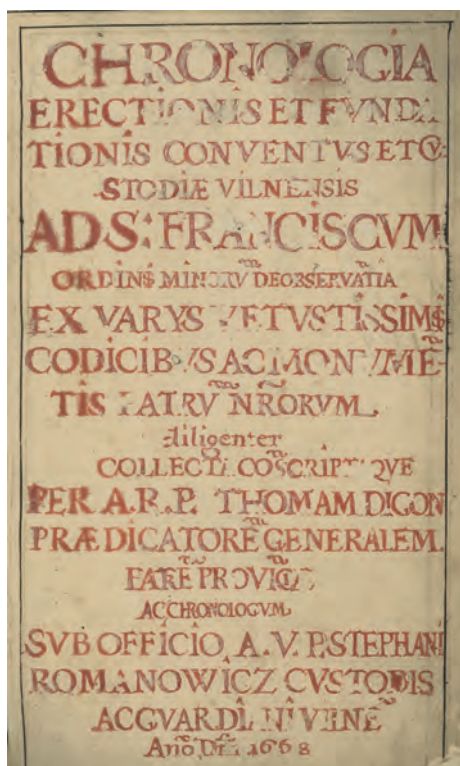 CHRONOLOGIA
ERECTIONIS ET FVNDA
TIONIS CONVENTVS ET CV:
STODIÆ VILNENSIS
AD S: FRANCISCVM
ORDINS MINORV̄ DE OBSERVATIA
EX VARYS VETVSTISSIMS
CODICIBVS AC MONVMĒ-
TIS PATRV̄ NR̄ORVM
diligenter
COLLECTA COSCRIPTAQVE
PER A.R.P. THOMAM DIGON
PRÆDICATORĒ GENERALEM
AC CHRONOLOGVM
SVB OFFICIO A. V. P. STEPHANI
ROMANOWICZ CVSTODIS
AC GVARDI NI VILNĒ
Ano Dni 1668